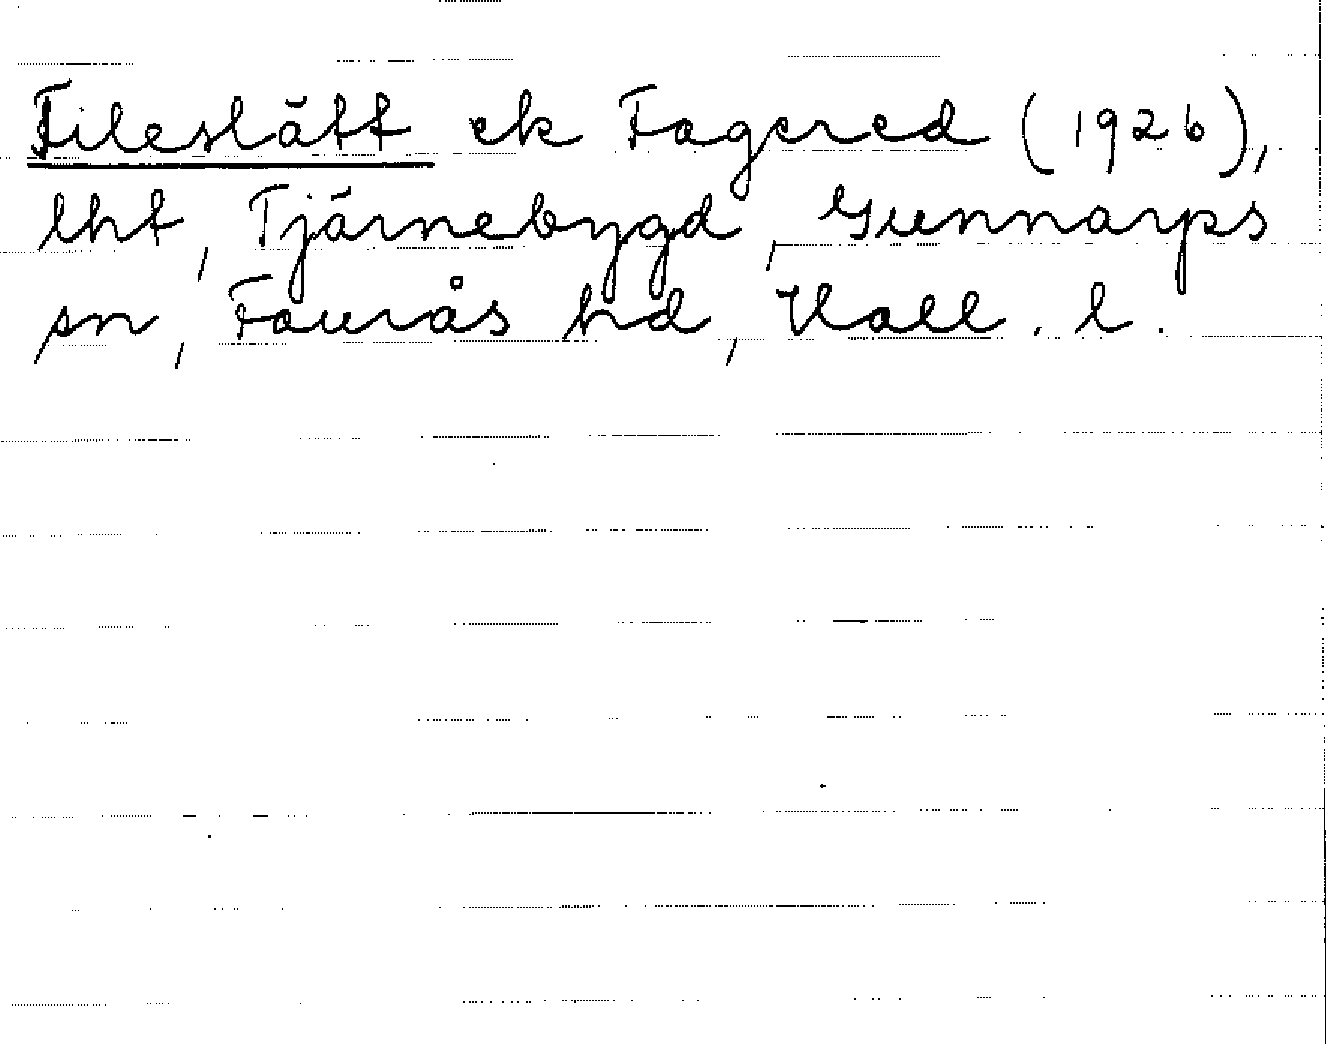 Fileslätt ek Fagered (1926),
lht, Tjärnebygd, Gunnarps
sn, Faurås hd, Hall. l.